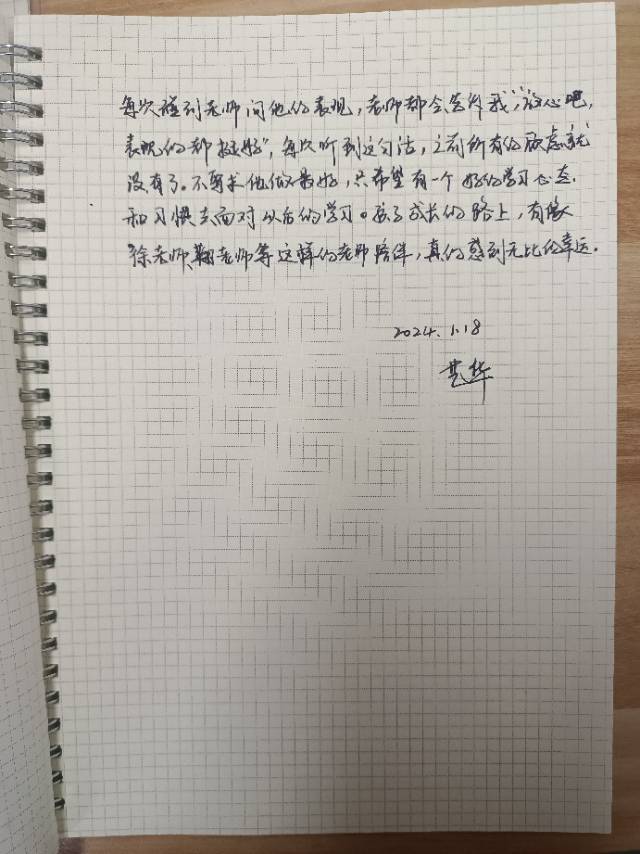 每次碰到老师问他的表现，老师都会告诉我，“放心吧，
表现的都挺好”，每次听到这句话，之前所有的顾虑就
没有了。不要求他做最好，只希望有一个好的学习心态
和习惯去面对以后的学习。孩子成长的路上，有像
徐老师、鞠老师等这样的老师陪伴，真的感到无比的幸运。
2024.1.18